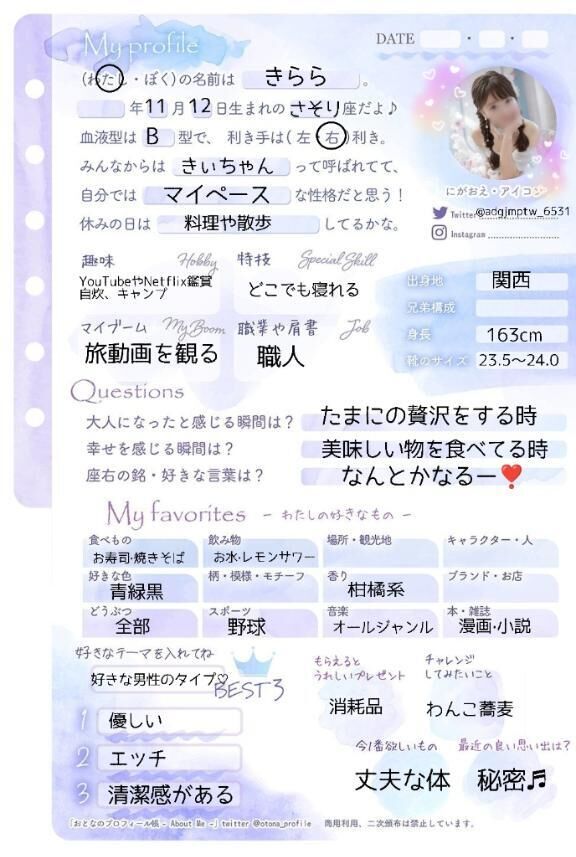 My profile
DATE ・ ・
(わたし・ぼく)の名前は きらら 。
年11月12日生まれのさそり座だよ♪
血液型は B 型で、利き手は(左・右)利き。
みんなからは きぃちゃん って呼ばれてて、
自分では マイペース な性格だと思う！
休みの日は 料理や散歩 してるかな。
にがおえ・アイコン
Twitter @adgjmptw_6531
Instagram
趣味 Hobby
YouTubeやNetflix鑑賞
自炊、キャンプ
特技 Special Skill
どこでも寝れる
マイブーム My Boom
旅動画を観る
職業や肩書 Job
職人
出身地 関西
兄弟構成
身長 163cm
靴のサイズ 23.5〜24.0
Questions
大人になったと感じる瞬間は？ たまにの贅沢をする時
幸せを感じる瞬間は？ 美味しい物を食べてる時
座右の銘・好きな言葉は？ なんとかなるー❣
My favorites - わたしの好きなもの -
食べもの 飲み物 場所・観光地 キャラクター・人
お寿司・焼きそば お水・レモンサワー
好きな色 柄・模様・モチーフ 香り ブランド・お店
青緑黒 柑橘系
どうぶつ スポーツ 音楽 本・雑誌
全部 野球 オールジャンル 漫画・小説
好きなテーマを入れてね
好きな男性のタイプ♡
BEST3
1 優しい
2 エッチ
3 清潔感がある
もらえると
うれしいプレゼント
消耗品
チャレンジ
してみたいこと
わんこ蕎麦
今1番欲しいもの
丈夫な体
最近の良い思い出は？
秘密♬
「おとなのプロフィール帳 - About Me -」twitter @otona_profile 商用利用、二次頒布は禁止しています。